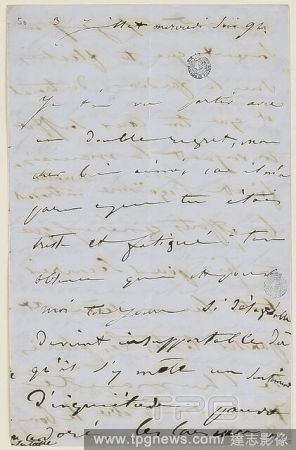 3 juillet mercredi soir 9h.
Je t'ai vu partir avec
un double regret, mon
cher bien aimé, car il m'a
paru que tu étais
triste et fatigué. ton
absence qui est pour
moi toujours si désagréable
devient insupportable dès
qu'il s'y mêle un sentiment
d'inquiétude pauvre
adoré
TPG
www.tpgnews.com 達志影像